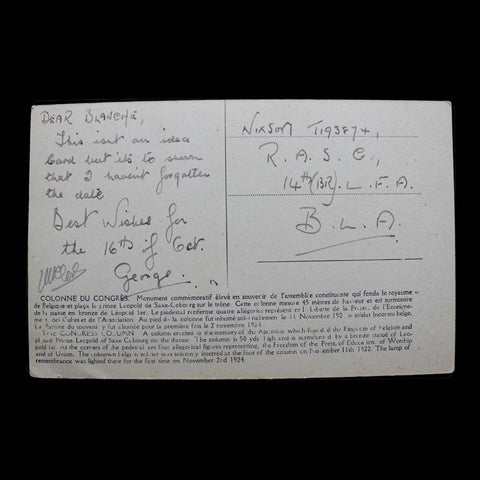 DEAR BLANCHE,
This isnt an idea
Card but its to show
that I havent forgotten
the date
Best Wishes for
the 16th of Oct.
George.
NIXSON T/19387
R. A. S. C.,
14th (BR). L. F. A.
B. L. A.
COLONNE DU CONGRÈS. Monument commémoratif élevé en souvenir de l'assemblée constituante qui fonda le royaume
de Belgique et plaça le prince Léopold de Saxe-Cobourg sur le trône. Cette colonne mesure 45 mètres de hauteur et est surmontée
de la statue en bronze de Léopold Ier. Le piédestal renferme quatre allégories représentant la Liberté de la Presse, de l'Enseigne-
ment, des Cultes et de l'Association. Au pied de la colonne fut inhumé solennellement le 11 Novembre 192 le soldat inconnu belge.
La flamme du souvenir y fut allumée pour la première fois le 2 novembre 1924
THE CONGRESS COLUMN. A column erected to the memory of the Assembly which founded the Kingdom of Belgium and
placed Prince Leopold of Saxe Cobourg on the throne. The column is 50 yds. high and is surmounted by a bronze statue of Leo-
pold Ist. At the corners of the pedestal are four allegorical figures representing, the Freedom of the Press, of Education, of Worship
and of Union. The unknown Belgian soldier was solemnly interred at the foot of the column on November 11th 1922. The lamp of
remembrance was lighted there for the first time on November 2nd 1924.